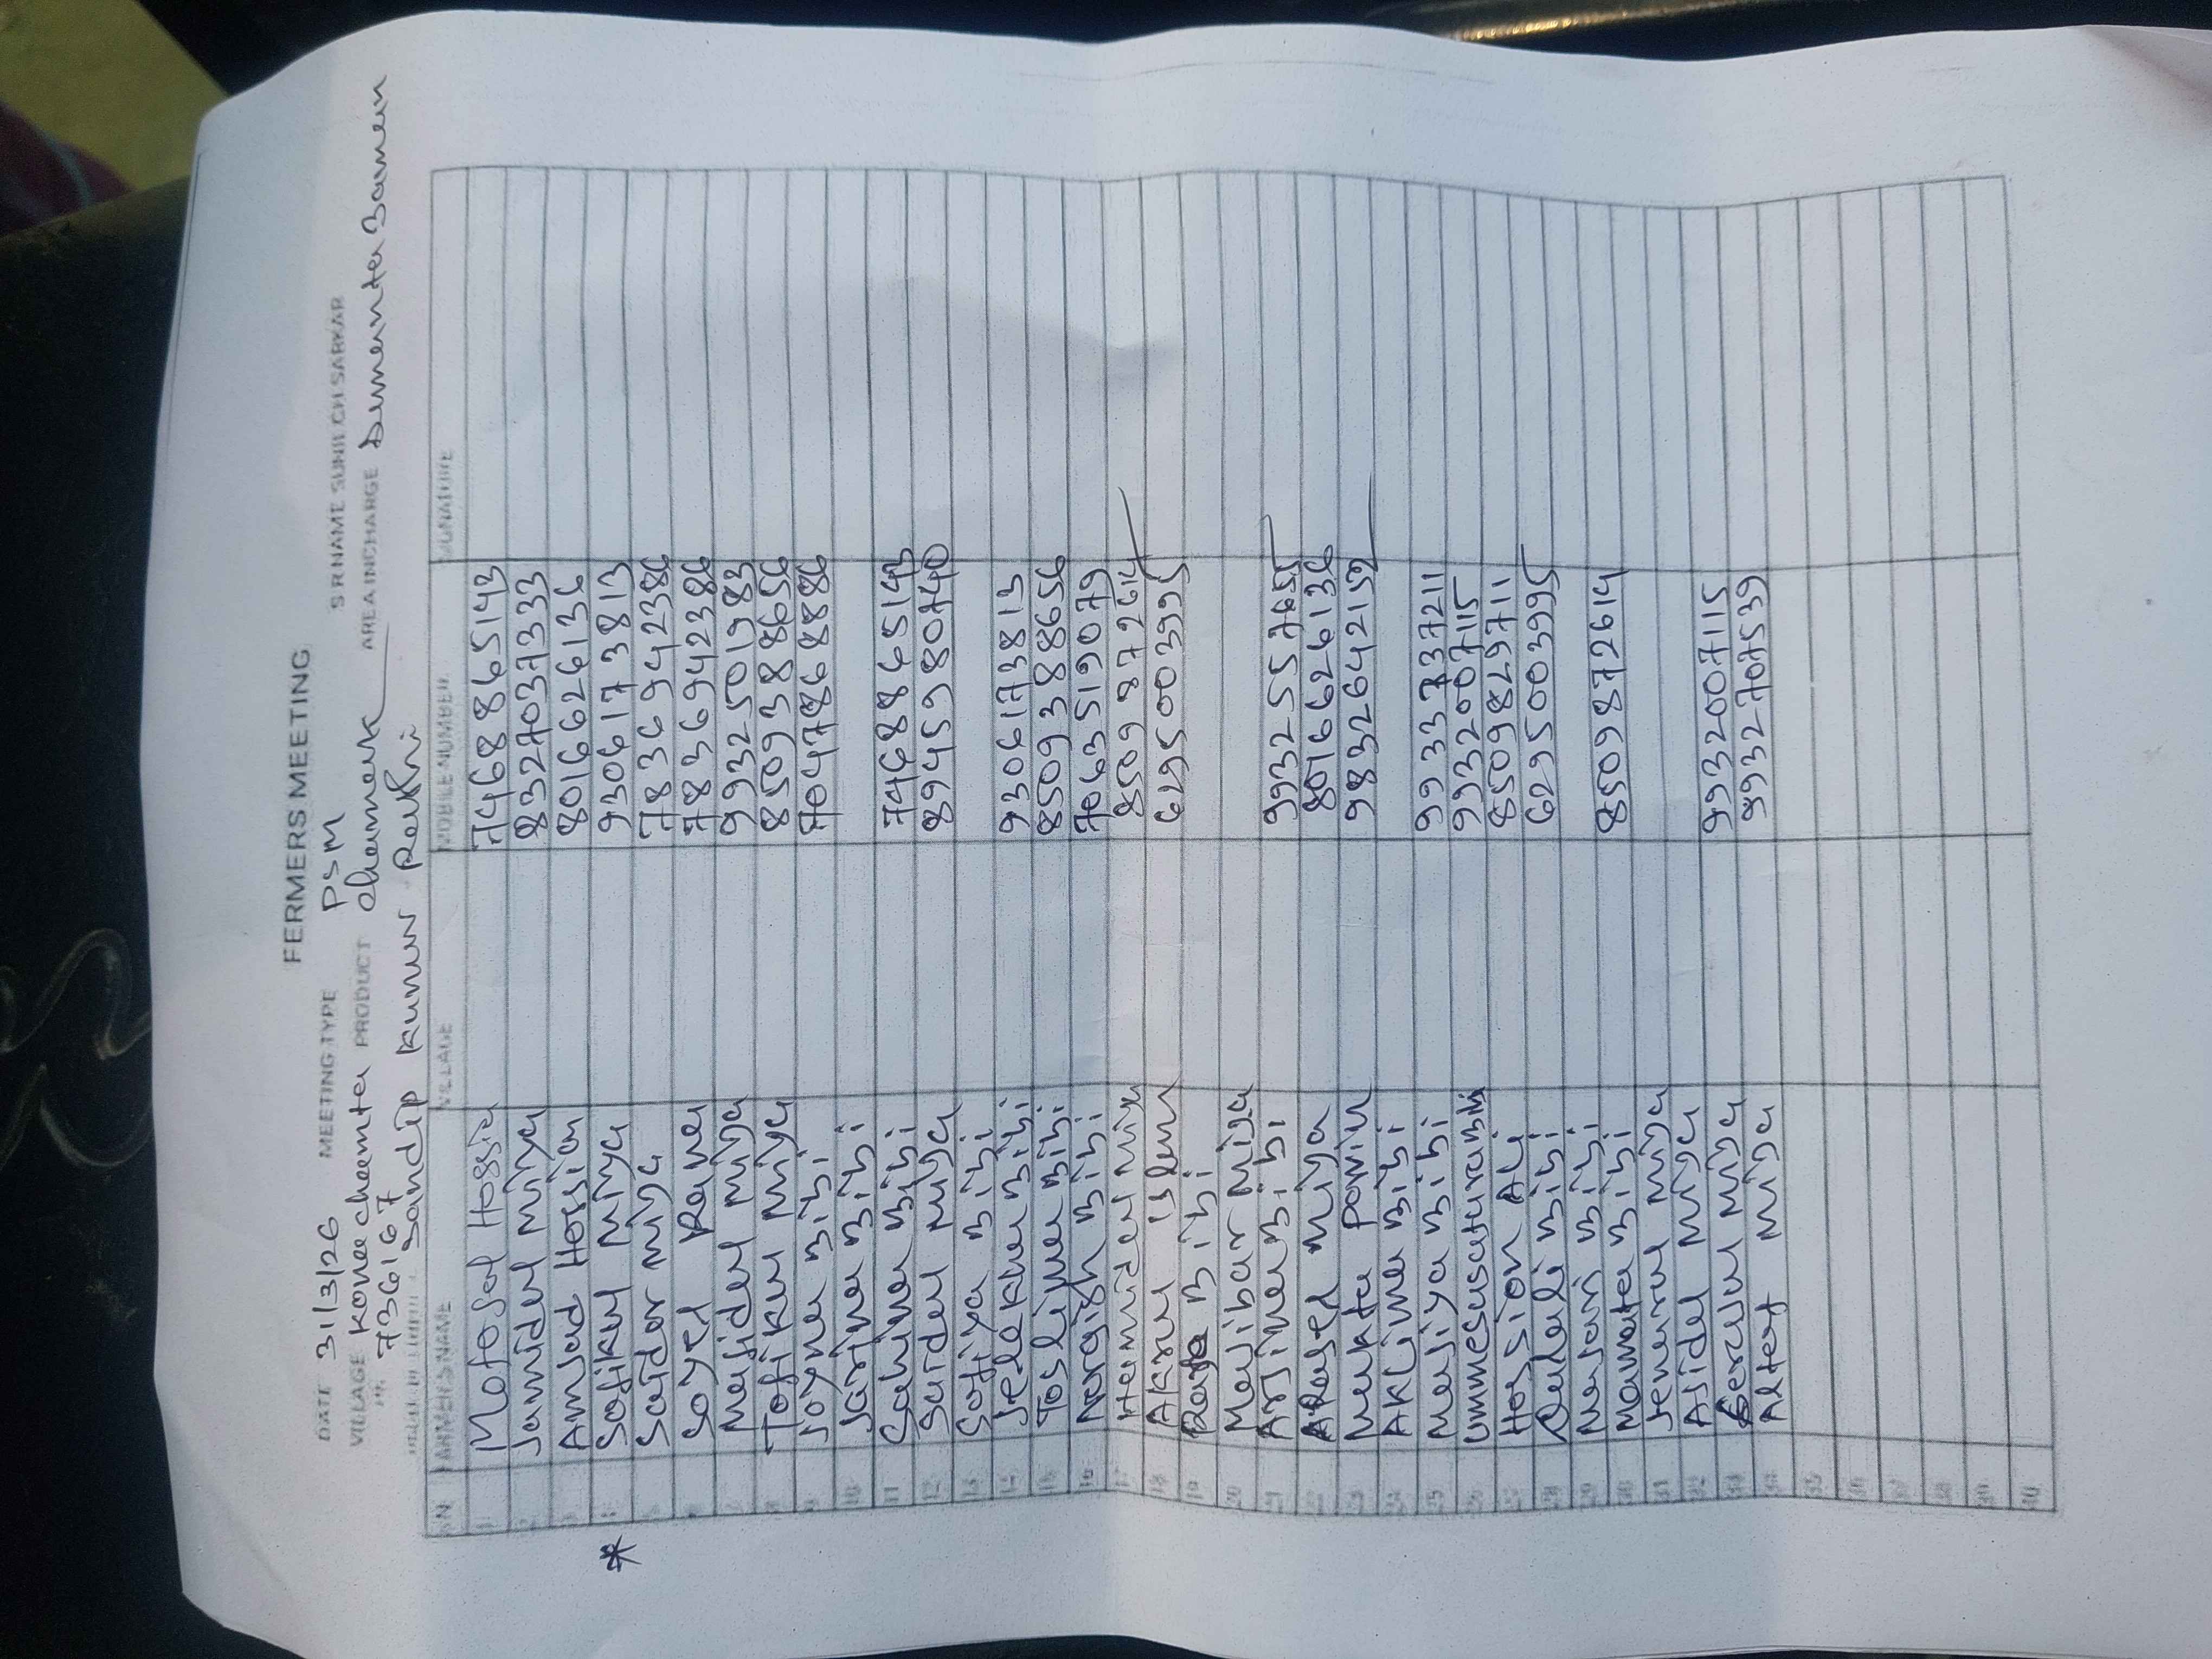 FERMERS MEETING
DATE 31/3/26 MEETING TYPE PSM S R NAME SUNIL CH SARKAR
VILLAGE Konachaemta PRODUCT Chamnak AREA INCHARGE
736167
Sandip Kumar
SN FARMERS NAME VILLAGE MOBILE NUMBER SIGNATURE
1 Mofosal Hossia 7468865143
2 Jamidul Miya 8327037333
3 Amjad Hossion 8016626136
* Sofikul Miya 9306173813
Saidar Miya 7836942386
Soyel Rana 7836942386
7 Majidul Miya 9932501983
8 Tofikul Miya 8509388656
9 Joyna Bibi 7047868886
10 Jarina Bibi
11 Sahina Bibi 7468865143
12 Saidul Miya 8945980740
13 Sofiya Bibi
14 Jelekha Bibi 9306173813
15 Toslima Bibi 8509388656
16 Nargish Bibi 7063519079
17 Hamidul Miya 8509872614
18 Akrul Islam 6295003995
19 Bibi
20 Majibar Miya
21 Arjina Bibi 9932557655
22 Miya 8016626136
23 Mukta Parvin 9832642152
24 Aklima Bibi
25 Majiya Bibi 9933737211
26 9932007115
27 Hossion Ali 8509829711
28 Bibi 6295003995
29 Bibi
30 Mamata Bibi 8509872614
31 Miya
32 Asidul Miya
33 Miya 9932007115
34 Altaf Miya 9932707539
35
36
37
38
39
40